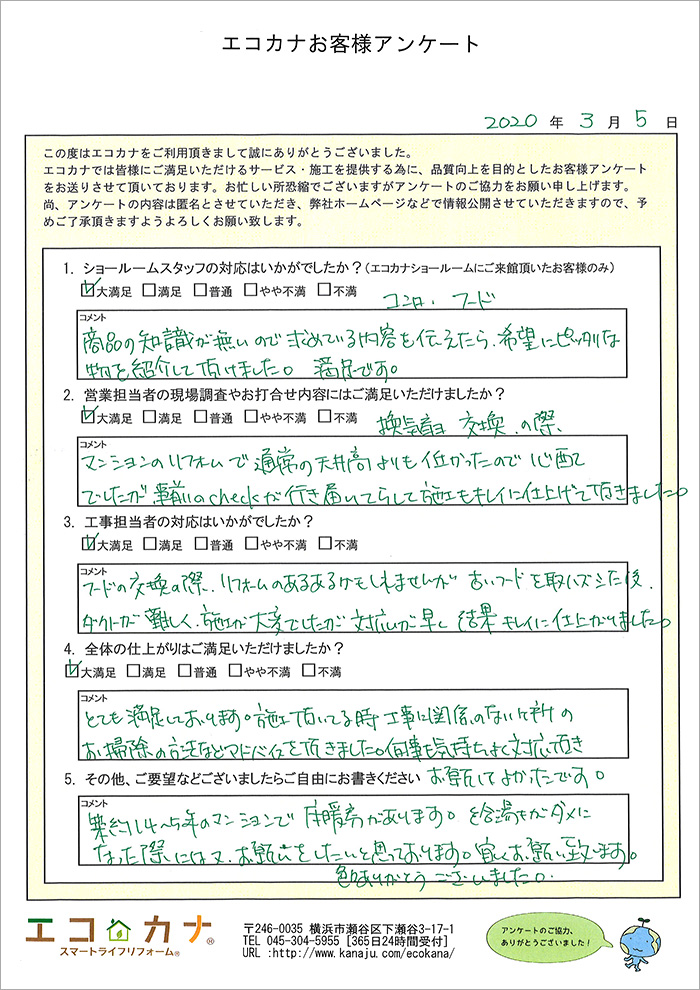 エコカナお客様アンケート
2020 年 3 月 5 日
この度はエコカナをご利用頂きまして誠にありがとうございました。
エコカナでは皆様にご満足いただけるサービス・施工を提供する為に、品質向上を目的としたお客様アンケート
をお送りさせて頂いております。お忙しい所恐縮でございますがアンケートのご協力をお願い申し上げます。
尚、アンケートの内容は匿名とさせていただき、弊社ホームページなどで情報公開させていただきますので、予
めご了承頂きますようよろしくお願い致します。
1. ショールームスタッフの対応はいかがでしたか？(エコカナショールームにご来館頂いたお客様のみ)
☑大満足 □満足 □普通 □やや不満 □不満
コンロ、フード
コメント
商品の知識が無いので求めている内容を伝えたら、希望にピッタリな
物を紹介して頂けました。満足です。
2. 営業担当者の現場調査やお打合せ内容にはご満足いただけましたか？
☑大満足 □満足 □普通 □やや不満 □不満
換気扇 交換 の際、
コメント
マンションのリフォームで通常の天井高よりも低かったので心配
でしたが、事前のcheckが行き届いてらして施工もキレイに仕上げて頂きました。
3. 工事担当者の対応はいかがでしたか？
☑大満足 □満足 □普通 □やや不満 □不満
コメント
フードの交換の際、リフォームのあるあるかもしれませんが 古いフードを取ハズシた後、
ダクトが難しく、施工が大変でしたが対応が早く 結果キレイに仕上がりました。
4. 全体の仕上がりはご満足いただけましたか？
☑大満足 □満足 □普通 □やや不満 □不満
コメント
とても満足しております。施工頂いてる時 工事に関係のないケ所の
お掃除の方法などアドバイスを頂きました。何事も気持ちよく対応頂き
5. その他、ご要望などございましたらご自由にお書きください
お願いしてよかったです。
コメント
築約14～5年のマンションで 床暖房があります。給湯器がダメに
なった際には又、お願いをしたいと思っております。宜しくお願い致します。
色々ありがとうございました。
エコカナ®
スマートライフリフォーム®
〒246-0035 横浜市瀬谷区下瀬谷3-17-1
TEL 045-304-5955 [365日24時間受付]
URL :http://www.kanaju.com/ecokana/
アンケートのご協力、
ありがとうございました！